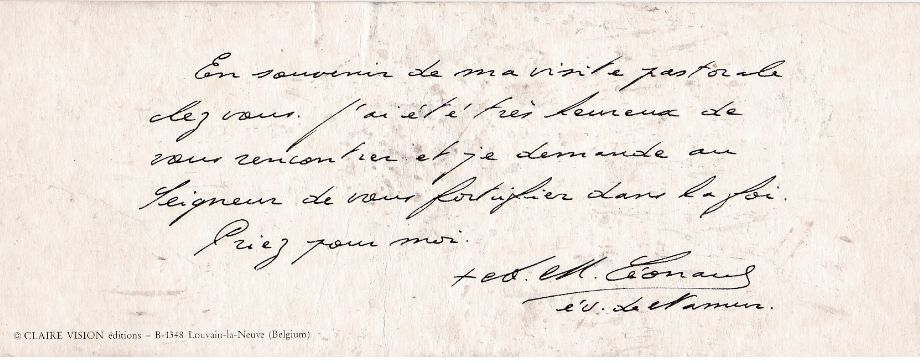 En souvenir de ma visite pastorale
chez vous. J'ai été très heureux de
vous rencontrer et je demande au
Seigneur de vous fortifier dans la foi.
Priez pour moi.
+ A. M. Léonard
év. de Namur.
© CLAIRE VISION éditions – B-1348 Louvain-la-Neuve (Belgium)